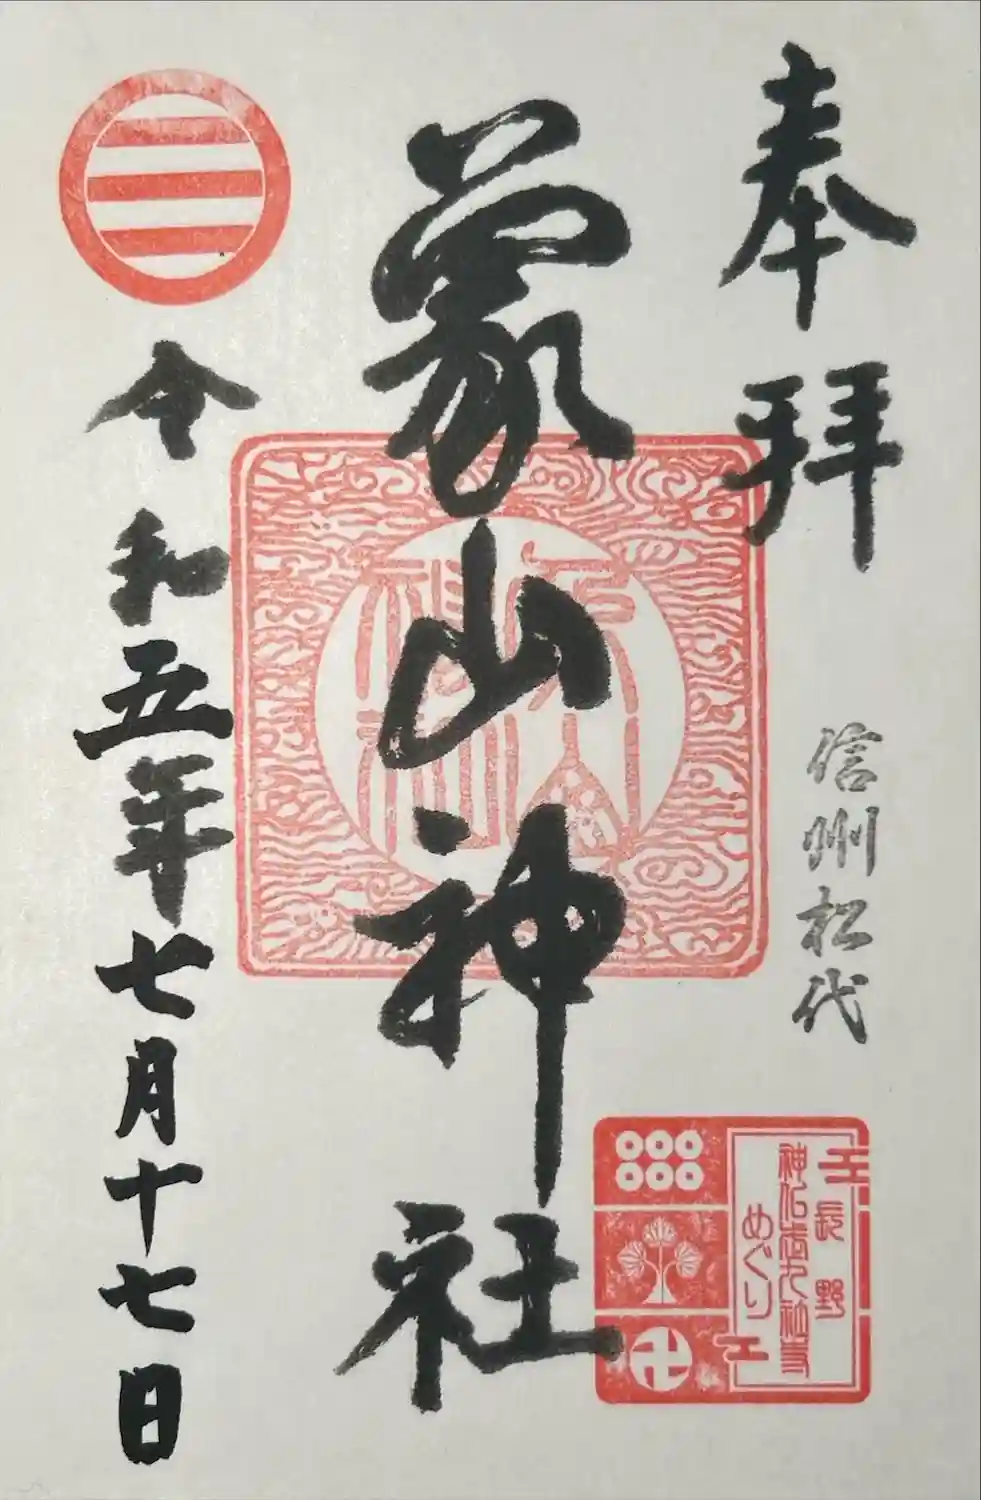 奉拝
信州松代
象山神社
令和五年七月十七日
長野
めぐり